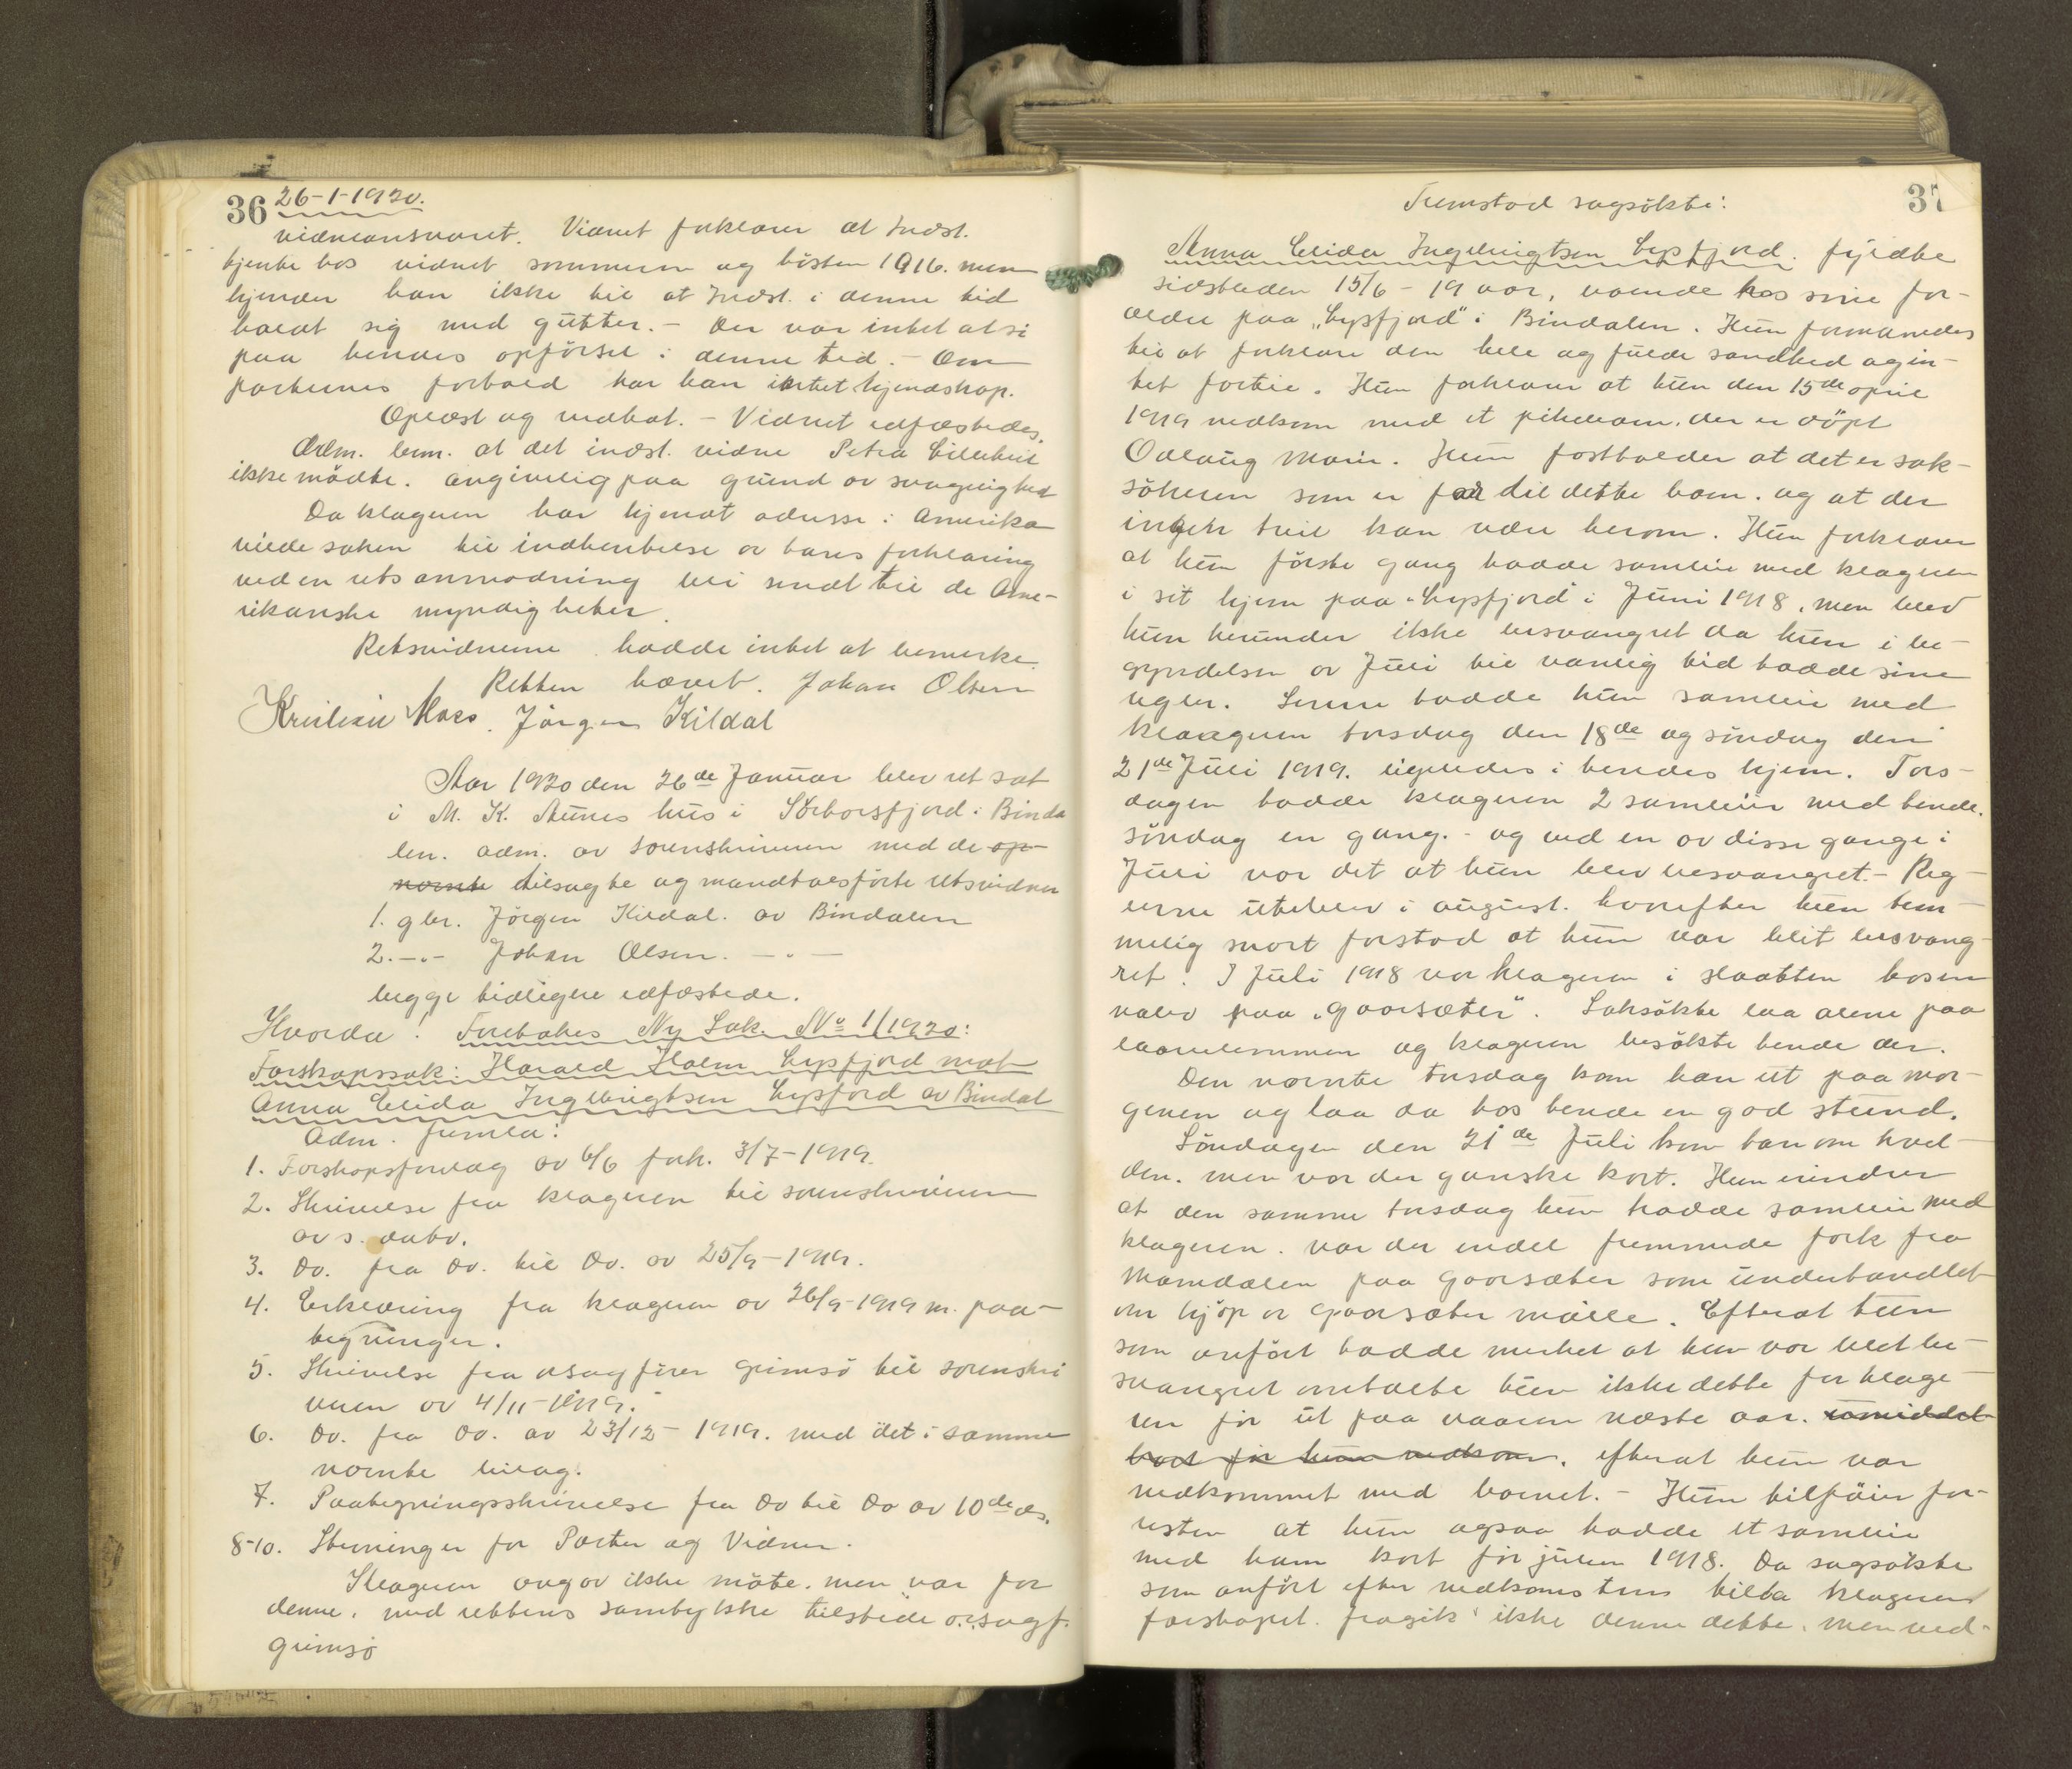 36 26-1-1920.
vidneansvaret. Vidnet forklarer at Indst.
tjente hos vidnet sommeren og høsten 1916. men
kjender han ikke til at Indst. i denne tid
holdt sig med gutter. - Der var intet at si
paa hendes opførsel i denne tid. - Om
parternes forhold har han intet kjendskap.
Oplæst og vedtat. - Vidnet edfæstedes.
Adm. bem. at det indst. vidne Petra
ikke mødte. angivelig paa grund av svagelighed
Da klageren har kjendt adresse i Amerika
vilde saken til indhentelse av hans forklaring
ved en retsanmodning bli sendt til de Ame-
rikanske myndigheter.
Retsvidnerne hadde intet at bemerke.
Retten hævet. Johan Olsen
Kristian Moes. Jörgen Kildal
Aar 1920 den 26de Januar blev ret sat
i M. K. Aunes hus i Sörhorsfjord i Binda
len. adm. av sorenskriveren med de op-
nævnte tilsagte og mandtalsførte retsvidner
1. gbr. Jörgen Kildal. av Bindalen
2. -.- Johan Olsen. - . -
begge tidligere edfæstede.
Hvorda! Foretokes Ny Sak No 1/1920:
Farskapssak: Harald Holm Lysfjord mot
Anna Elida Ingebrigtsen Lysfjord av Bindal
Adm. fremla:
1. Farskapsforelæg av 6/6 fork. 3/7-1919.
2. Skrivelse fra klageren til sorenskriveren
av s. dato.
3. Do. fra do. til Do. av 25/9-1919.
4. Erklæring fra klageren av 26/9-1919 m. paa-
tegninger.
5. Skrivelse fra o.sagfører Grimsø til sorenskri
veren av 4/11-1919.
6. Do. fra Do. av 23/12-1919. med det i samme
nævnte bilag.
7. Paategningsskrivelse fra Do til Do av 10de ds.
8-10. Stevninger for Parter og Vidner.
Klageren avgav ikke møte. men var for
denne, med rettens samtykke tilstede o.r.sagf.
Grimsø
37
Fremstod sagsökte:
Anna Elida Ingebrigtsen Lysfjord. fyldte
sidstleden 15/6 - 19 aar, boende hos sine for-
ældre paa "Lysfjord" i Bindalen. Hun formanedes
til at forklare den hele og fulde sandhed og in-
tet fortie. Hun forklarer at hun den 15de april
1919 nedkom med et pikebarn, der er döpt
Odlaug Marie. Hun fastholder at det er sak-
sökeren som er far til dette barn. og at der
ingen tvil kan være herom. Hun forklarer
at hun förste gang hadde samleie med klageren
i sit hjem paa "Lysfjord" i Juni 1918, men blev
hun herunder ikke besvangret da hun i be-
gyndelsen av Juli til vanlig tid hadde sine
regler. Senere hadde hun samleie med
klageren torsdag den 18de og söndag den
21de Juli 1919. ligeledes i hendes hjem. Tors-
dagen hadde klageren 2 samleier med hende.
söndag en gang. - og ved en av disse gange i
Juli var det at hun blev besvangret. - Reg-
lerne uteblev i august. hvorefter hun tem-
melig snart forstod at hun var blit besvang-
ret. I Juli 1918 var klageren i slaatten hos en
nabo paa "Gaarsæter". Saksökte laa alene paa
laavelemmen og klageren besökte hende der.
Den nævnte torsdag kom han ut paa mor-
genen og laa da hos hende en god stund.
Söndagen den 21de Juli kom han om kvel-
den. men var der ganske kort. Hun erindrer
at den samme torsdag hun hadde samleie med
klageren. var der endel fremmede folk fra
Namdalen paa Gaarsæter som underhandlet
om kjöp av Gaarsæter mölle. Efterat hun
som anfört hadde merket at hun var blit be-
svangret omtalte hun ikke dette for klage-
ren för ut paa vaaren næste aar. umiddel-
bart før hun nedkom. efterat hun var
nedkommet med barnet. - Hun tilföier for-
resten at hun ogsaa hadde et samleie
med ham kort för julen 1918. Da sagsökte
som anfört efter nedkomsten tilla klageren
farskapet. fragik ikke denne dette. men ved-